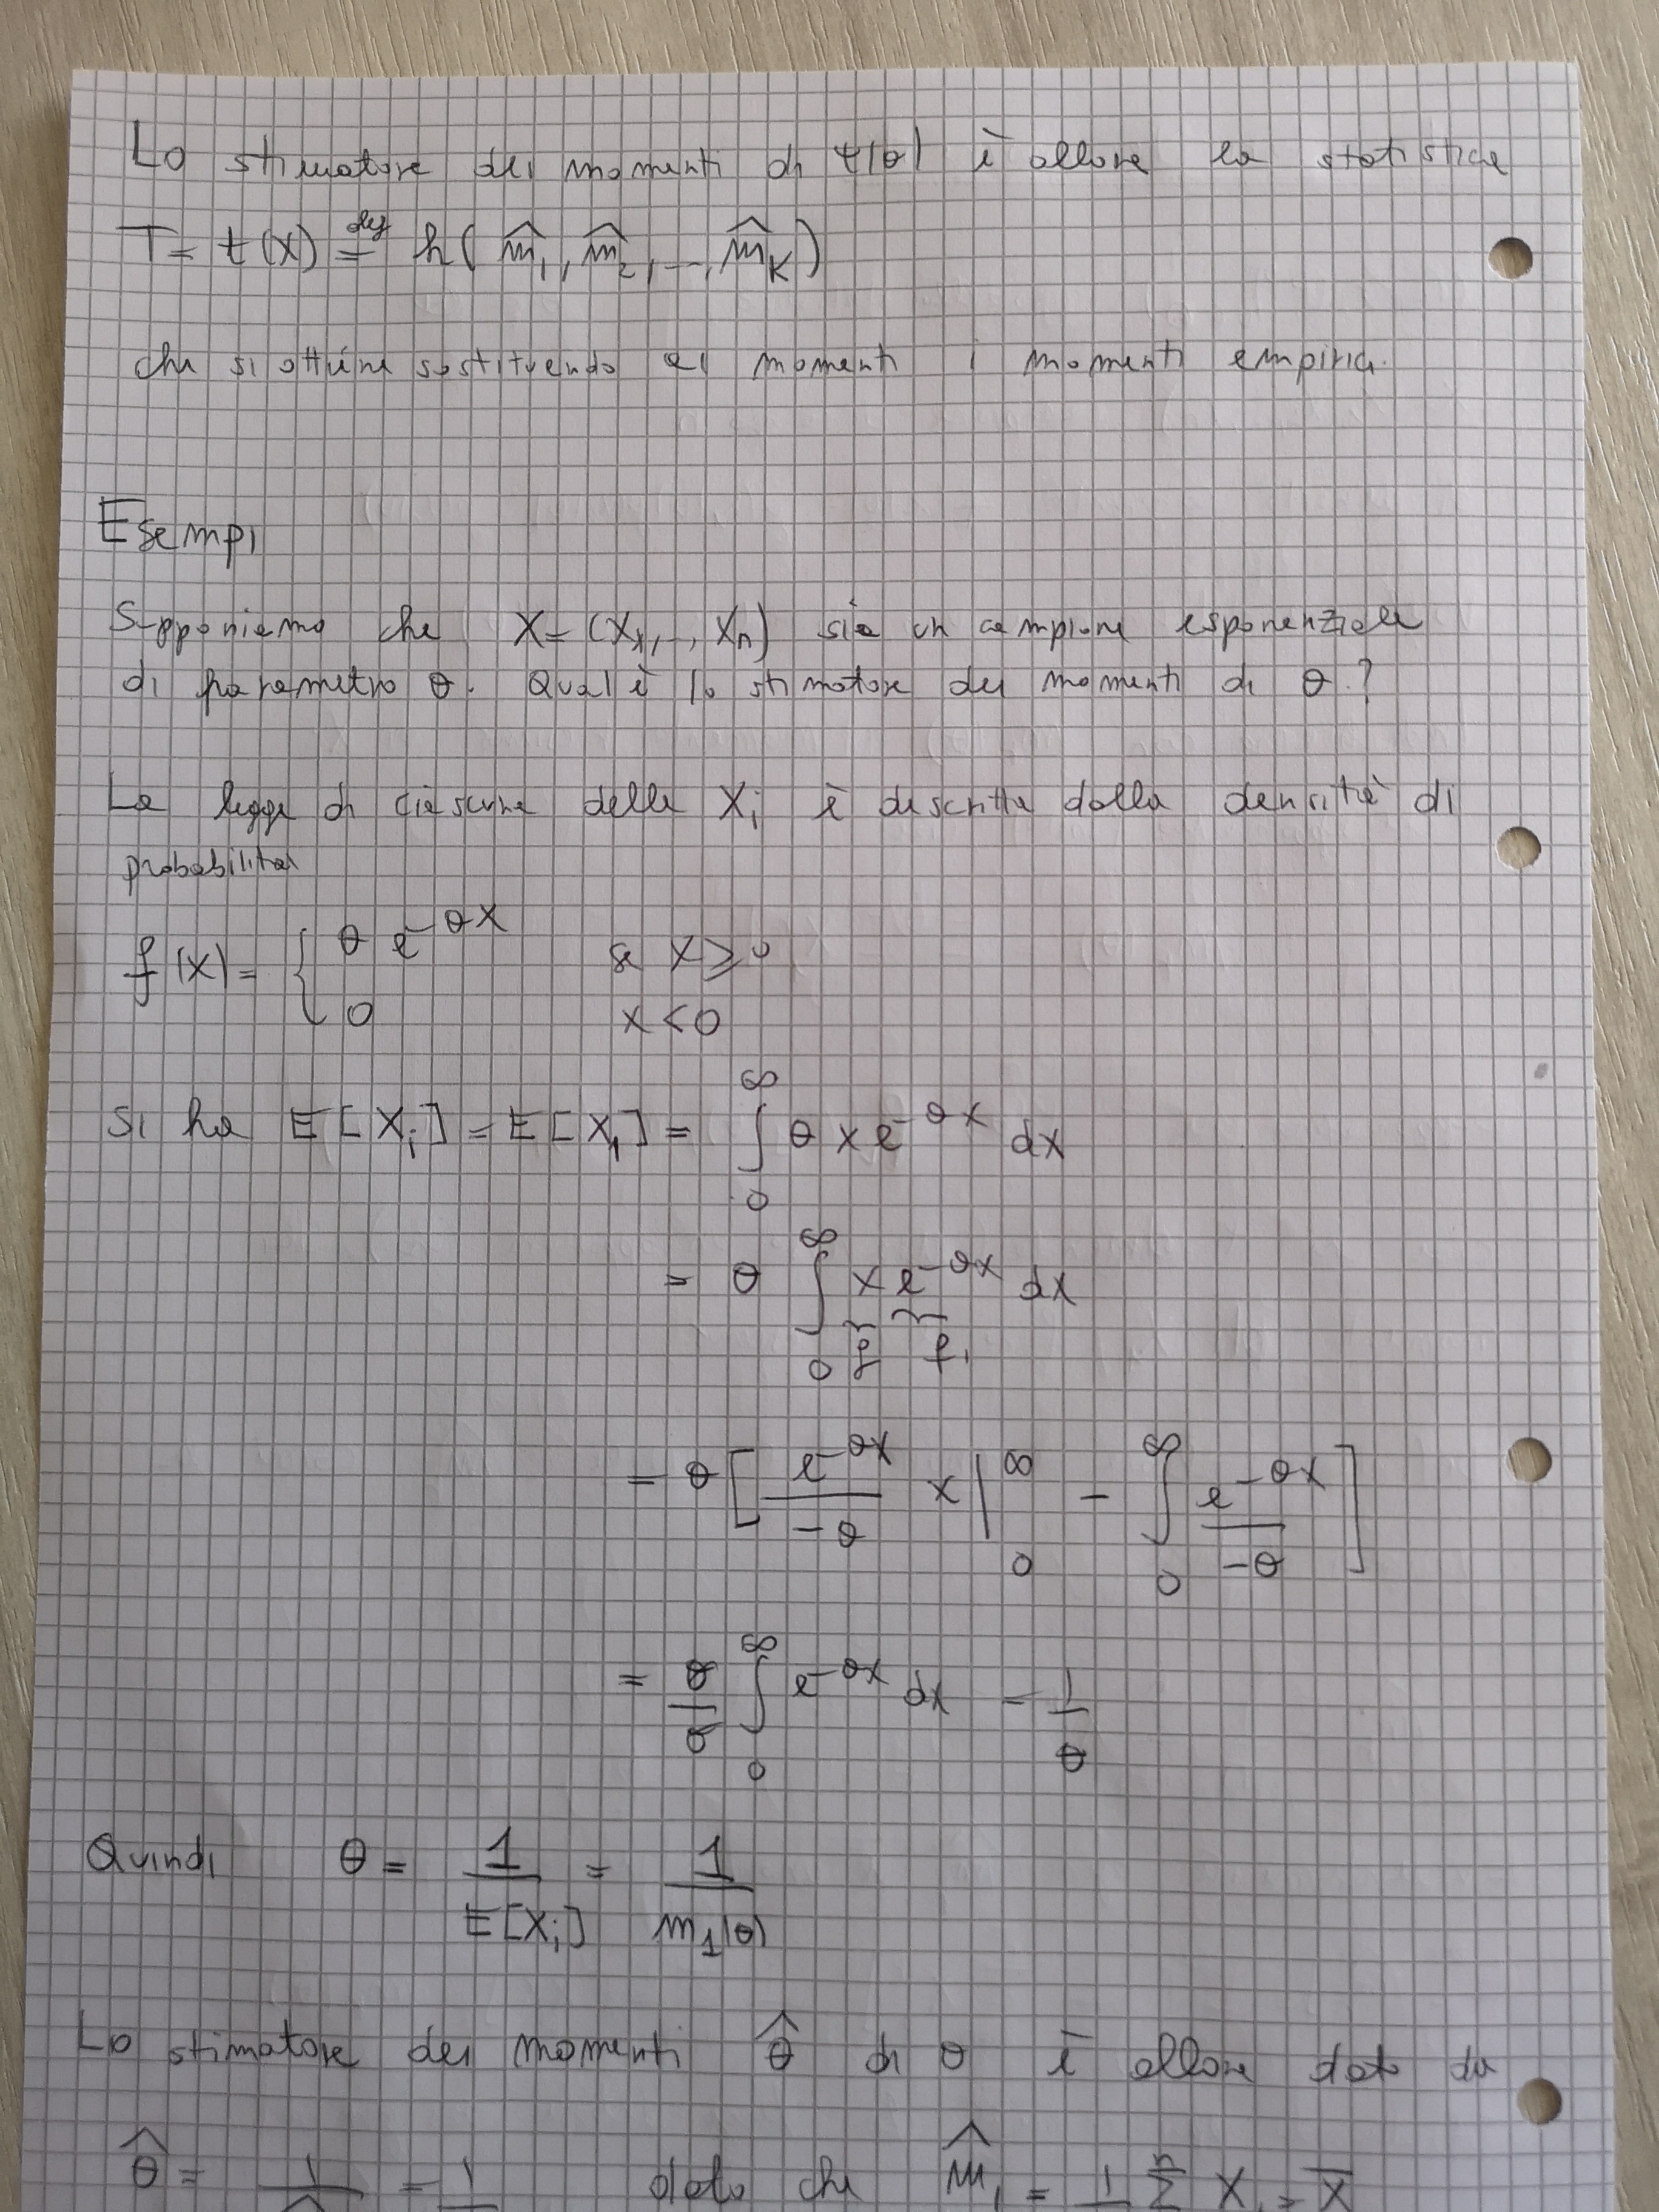 Lo stimatore dei momenti di τ(θ) è allora la statistica
T = t(X) =^{def} h(m̂₁, m̂₂, ..., m̂_K)
che si ottiene sostituendo ai momenti i momenti empirici.
Esempi
Supponiamo che X = (X₁, .., Xₙ) sia un campione esponenziale
di parametro θ. Qual è lo stimatore dei momenti di θ?
La legge di ciascuna delle Xᵢ è descritta dalla densità di
probabilità
f(x) = { θ e^{-θx} se x ≥ 0
0 x < 0
Si ha E[Xᵢ] = E[X₁] = ∫₀^∞ θ x e^{-θx} dx
= θ ∫₀^∞ x e^{-θx} dx
g f'
= θ [ e^{-θx}/(-θ) x |₀^∞ - ∫₀^∞ e^{-θx}/(-θ) ]
= θ/θ ∫₀^∞ e^{-θx} dx = 1/θ
Quindi θ = 1/E[Xᵢ] = 1/m₁(θ)
Lo stimatore dei momenti θ̂ di θ è allora dato da
θ̂ = 1/ = 1/ dato che m̂₁ = 1/ Σⁿ Xᵢ = X̄